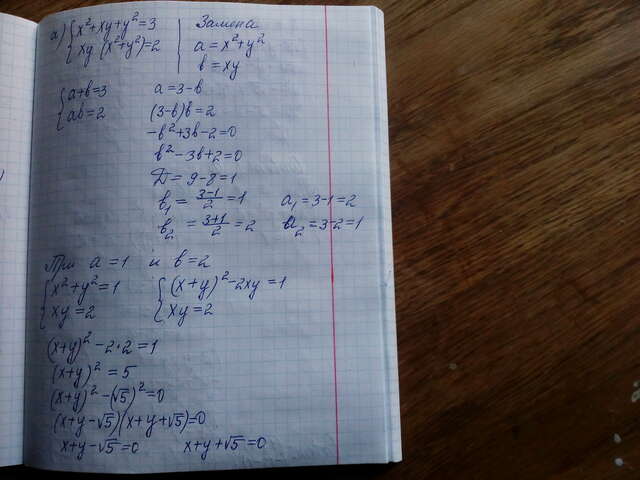 а) { x²+xy+y²=3
xy (x²+y²)=2
Замена
a = x²+y²
b = xy
{ a+b=3
ab=2
a=3-b
(3-b)b=2
-b²+3b-2=0
b²-3b+2=0
D = 9-8=1
b₁ = (3-1)/2 = 1 a₁ = 3-1=2
b₂ = (3+1)/2 = 2 a₂ = 3-2=1
При a=1 и b=2
{ x²+y²=1
xy=2
{ (x+y)²-2xy=1
xy=2
(x+y)²-2·2=1
(x+y)²=5
(x+y)²-(√5)²=0
(x+y-√5)(x+y+√5)=0
x+y-√5=0 x+y+√5=0